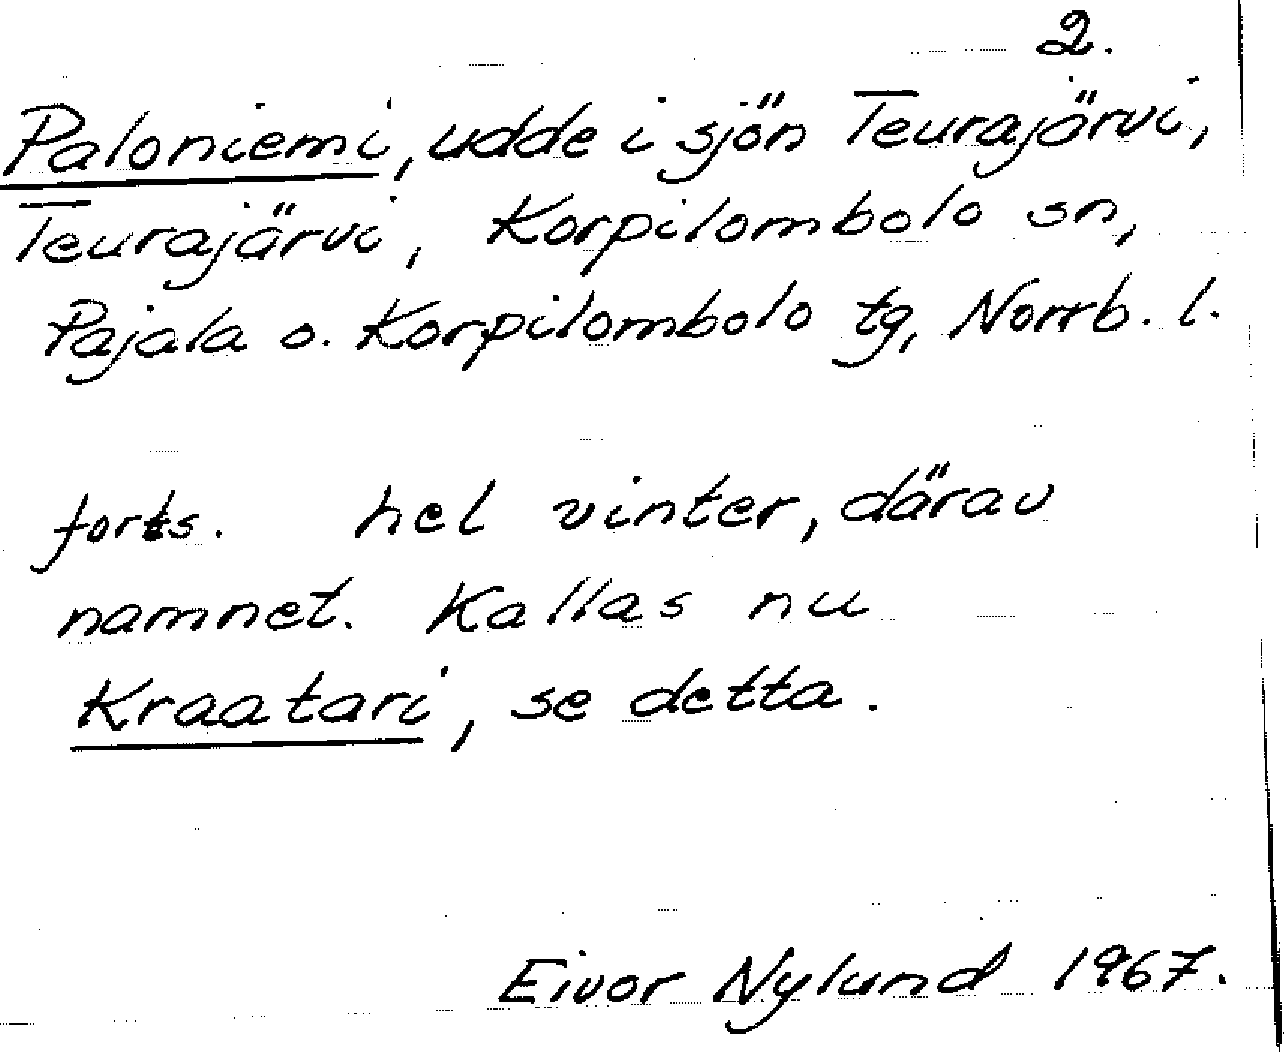 2.
Paloniemi, udde i sjön Teurajärvi,
Teurajärvi, Korpilombolo sn,
Pajala o. Korpilombolo tg, Norrb. l.
forts. hel vinter, därav
namnet. Kallas nu
Kraatari, se detta.
Eivor Nylund 1967.